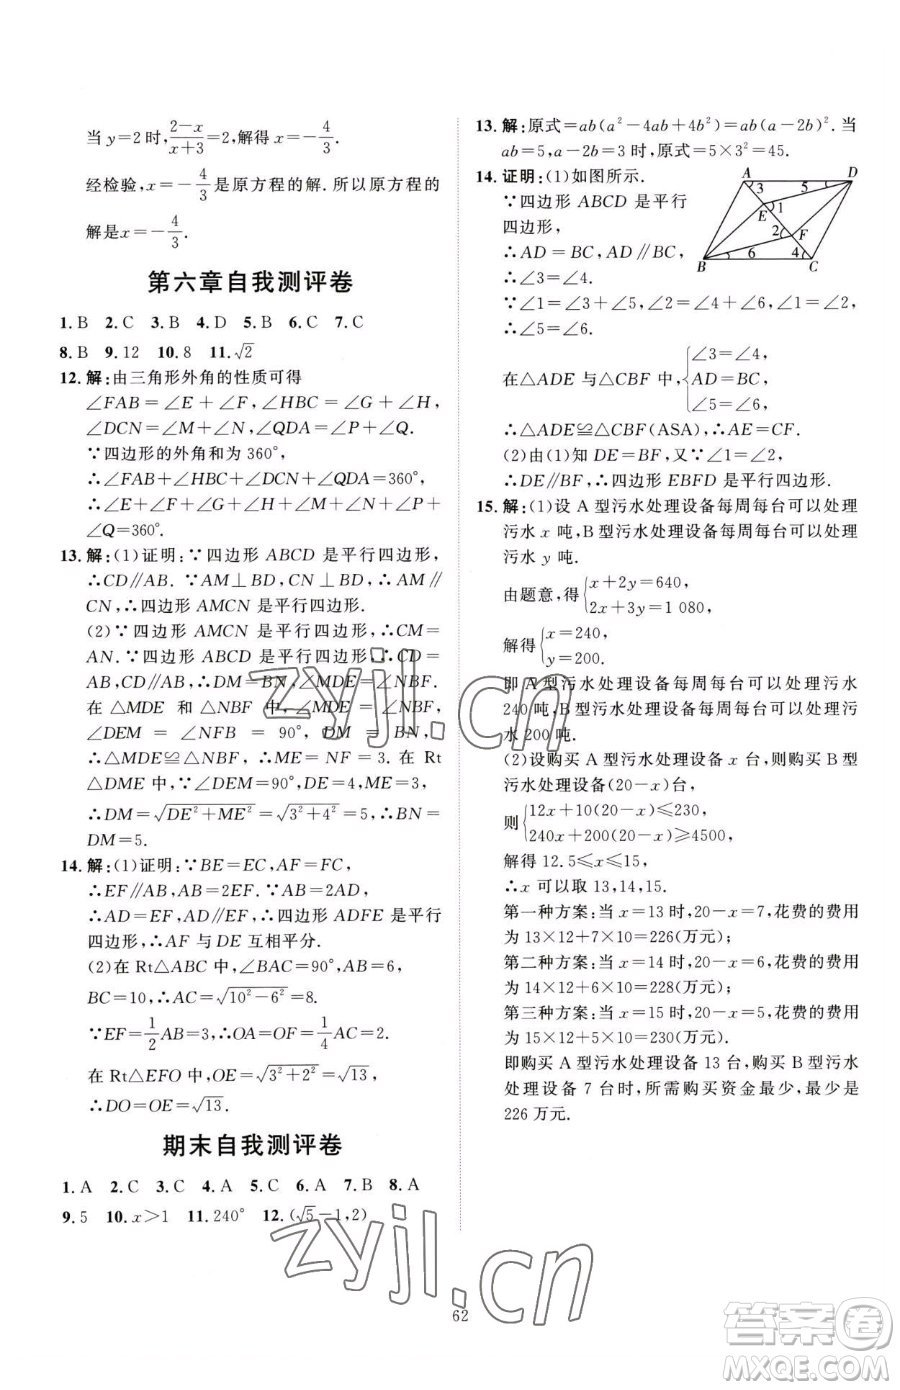 当 y=2 时, (2-x)/(x+3)=2, 解得 x=-4/3.
经检验, x=-4/3 是原方程的解. 所以原方程的
解是 x=-4/3.
第六章自我测评卷
1. B 2. C 3. B 4. D 5. B 6. C 7. C
8. B 9. 12 10. 8 11. √2
12. 解:由三角形外角的性质可得
∠FAB=∠E+∠F,∠HBC=∠G+∠H,
∠DCN=∠M+∠N,∠QDA=∠P+∠Q.
∵四边形的外角和为 360°,
∴∠FAB+∠HBC+∠DCN+∠QDA=360°,
∴∠E+∠F+∠G+∠H+∠M+∠N+∠P+
∠Q=360°.
13. 解:(1)证明:∵四边形 ABCD 是平行四边形,
∴CD∥AB. ∵AM⊥BD,CN⊥BD,∴AM∥
CN,∴四边形 AMCN 是平行四边形.
(2)∵四边形 AMCN 是平行四边形,∴CM=
AN. ∵四边形 ABCD 是平行四边形,∴CD=
AB,CD∥AB,∴DM=BN,∠MDE=∠NBF.
在△MDE 和△NBF 中,∠MDE=∠NBF,
∠DEM=∠NFB=90°,DM=BN,
∴△MDE≌△NBF,∴ME=NF=3. 在 Rt
△DME 中,∵∠DEM=90°,DE=4,ME=3,
∴DM=√(DE²+ME²)=√(3²+4²)=5,∴BN=
DM=5.
14. 解:(1)证明:∵BE=EC,AF=FC,
∴EF∥AB,AB=2EF. ∵AB=2AD,
∴AD=EF,∴四边形 ADFE 是平行
四边形,∴AF 与 DE 互相平分.
(2)在 Rt△ABC 中,∵∠BAC=90°,AB=6,
BC=10,∴AC=√(10²-6²)=8.
∵EF=1/2 AB=3,∴OA=OF=1/4 AC=2.
在 Rt△EFO 中,OE=√(3²+2²)=√13,
∴DO=OE=√13.
期末自我测评卷
1. A 2. C 3. C 4. A 5. C 6. A 7. B 8. A
9. 5 10. x>1 11. 240° 12. (√5-1,2)
13. 解:原式=ab(a²-4ab+4b²)=ab(a-2b)². 当
ab=5,a-2b=3 时,原式=5×3²=45.
14. 证明:(1)如图所示.
∵四边形 ABCD 是平行
四边形,
∴AD=BC,AD∥BC,
∴∠3=∠4.
A D 3 5 E 1 2 F B 6 4 C
∵∠1=∠3+∠5,∠2=∠4+∠6,∠1=∠2,
∴∠5=∠6.
在△ADE 与△CBF 中, {∠3=∠4,
AD=BC,
∠5=∠6,
∴△ADE≌△CBF(ASA),∴AE=CF.
(2)由(1)知 DE=BF,又∵∠1=∠2,
∴DE∥BF,∴四边形 EBFD 是平行四边形.
15. 解:(1)设 A 型污水处理设备每周每台可以处理
污水 x 吨,B 型污水处理设备每周每台可以处理
污水 y 吨.
由题意,得 {x+2y=640,
2x+3y=1 080,
解得 {x=240,
y=200.
即 A 型污水处理设备每周每台可以处理污水
240 吨,B 型污水处理设备每周每台可以处理污
水 200 吨.
(2)设购买 A 型污水处理设备 x 台,则购买 B 型
污水处理设备(20-x)台,
则 {12x+10(20-x)≤230,
240x+200(20-x)≥4500,
解得 12.5≤x≤15.
∴x 可以取 13,14,15.
第一种方案:当 x=13 时,20-x=7,花费的费用
为 13×12+7×10=226(万元);
第二种方案:当 x=14 时,20-x=6,花费的费用
为 14×12+6×10=228(万元);
第三种方案:当 x=15 时,20-x=5,花费的费用
为 15×12+5×10=230(万元).
即购买 A 型污水处理设备 13 台,购买 B 型污水
处理设备 7 台时,所需购买资金最少,最少是
226 万元.
62
zyjl.cn
zyjl.cn
答案圈
MXQE.COM